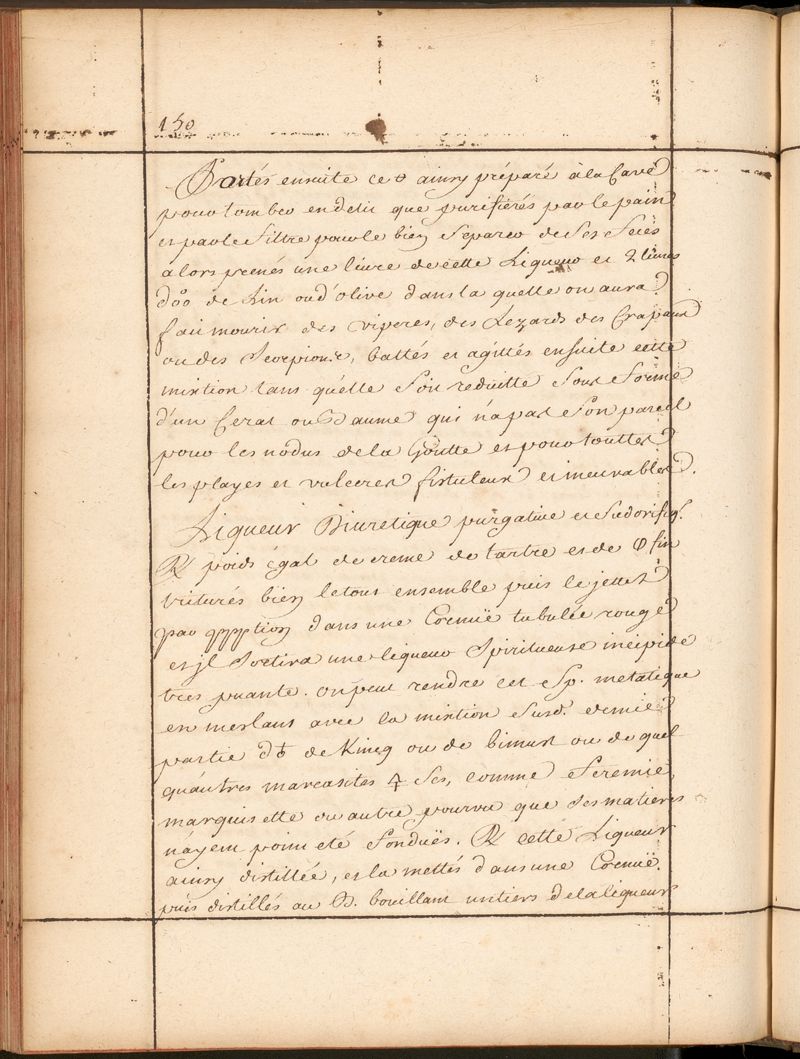 150
Portés ensuite ce ainsy préparé à la Cave
pour tomber en deliq que purifierés par le pain
et par le filtre pour le bien separer de ses feces
alors prenés une livre de cette Liqueur et 2 livres
de Lin ou d'olive dans la quelle on aura
fait mourir des viperes, des Lezards des Crapaux
ou des Scorpions, battés et agittés ensuite cette
mixtion tans qu'elle soit reduitte sous forme
d'un Cerat ou Baume qui n'a pas son pareil
pour les nodus de la Goutte et pour touttes
les playes et vulceres fistuleux et incurables.
Liqueur Diuretique purgative et Sudorifiq.
℞ poids égal de creme de tartre et de fin
triturés bien le tout ensemble puis le jettes
par dans une Cornuë tubulée rougé
et jl sortira une liqueur Spiritueuse incipide
tres puante. on peut rendre cet Sp. metalique
en meslant avec la mixtion susd. demie
partie de Kincq ou de bimust ou de quel
qu'autres marcasites ses, comme
marquisette ou autre pourvu que ses matieres
n'ayent point été fonduës. ℞ cette Liqueur
ainsy distillée, et la mettés dans une Cornuë
puis distillés au B. bouillant un tiers de la liqueur